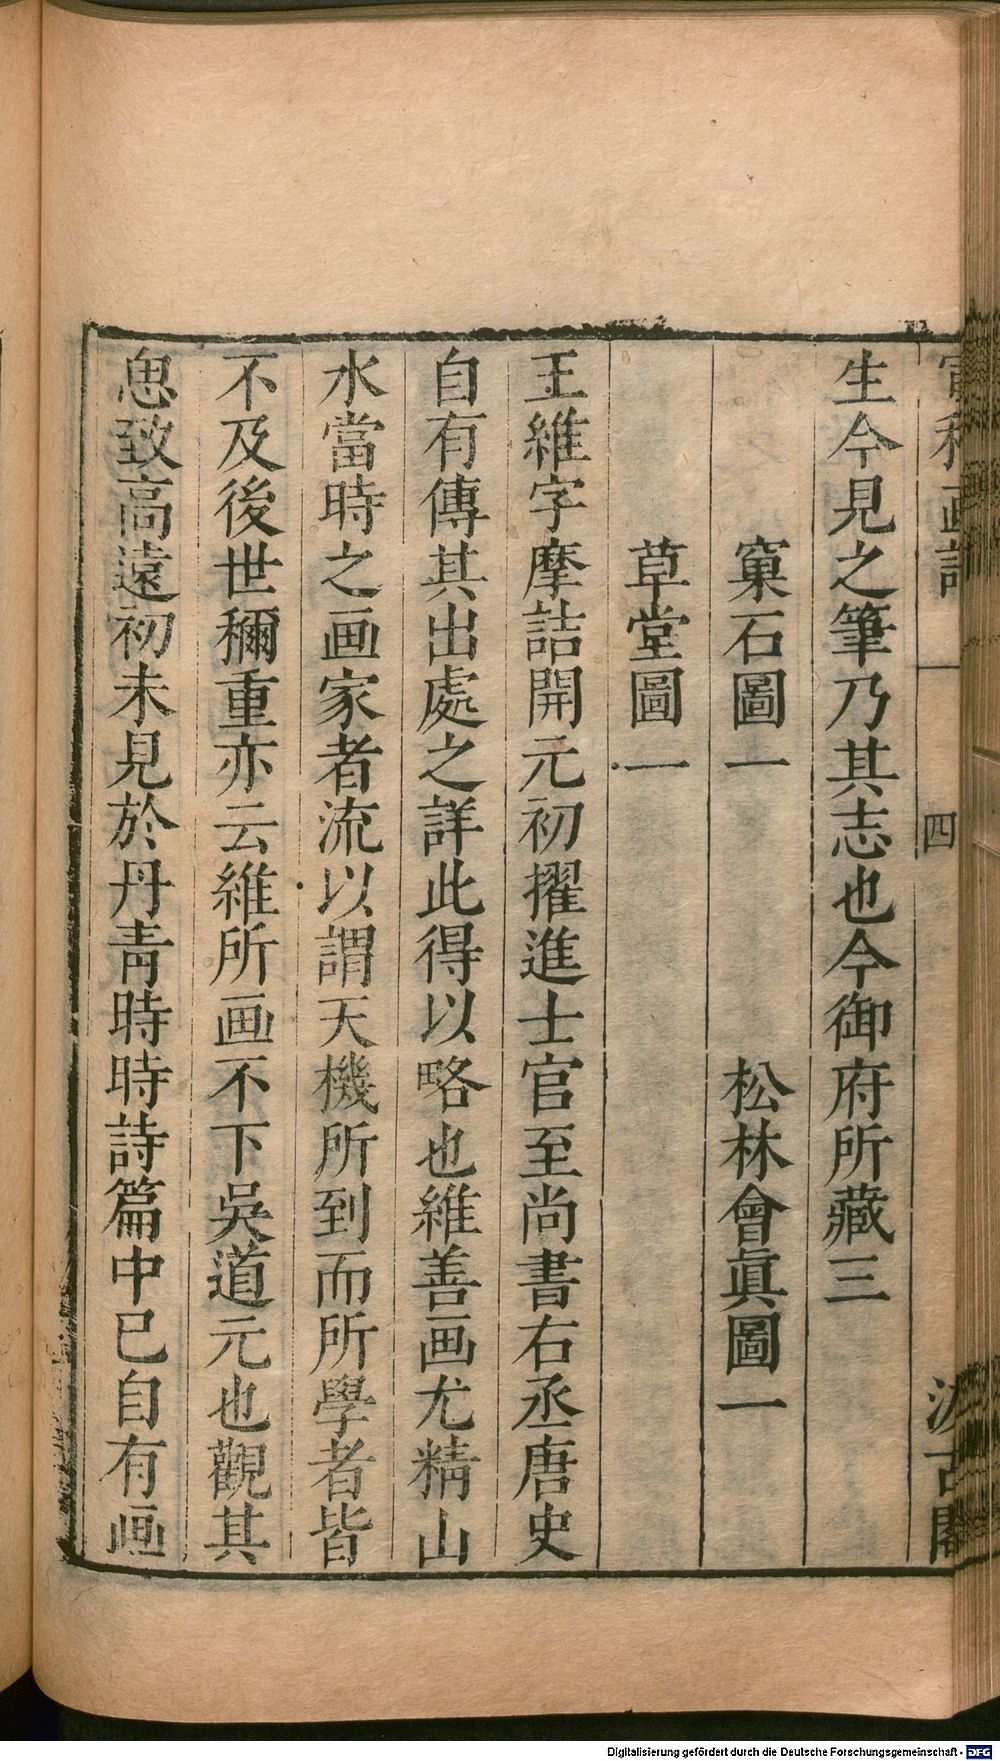 生今見之筆乃其志也今御府所藏三
窠石圖一 松林會眞圖一
草堂圖一
王維字摩詰開元初擢進士官至尚書右丞唐史
自有傳其出處之詳此得以略也維善画尤精山
水當時之画家者流以謂天機所到而所學者皆
不及後世稱重亦云維所画不下吳道元也觀其
思致高遠初未見於丹靑時時詩篇中已自有画
四
Digitalisierung gefördert durch die Deutsche Forschungsgemeinschaft - DFG